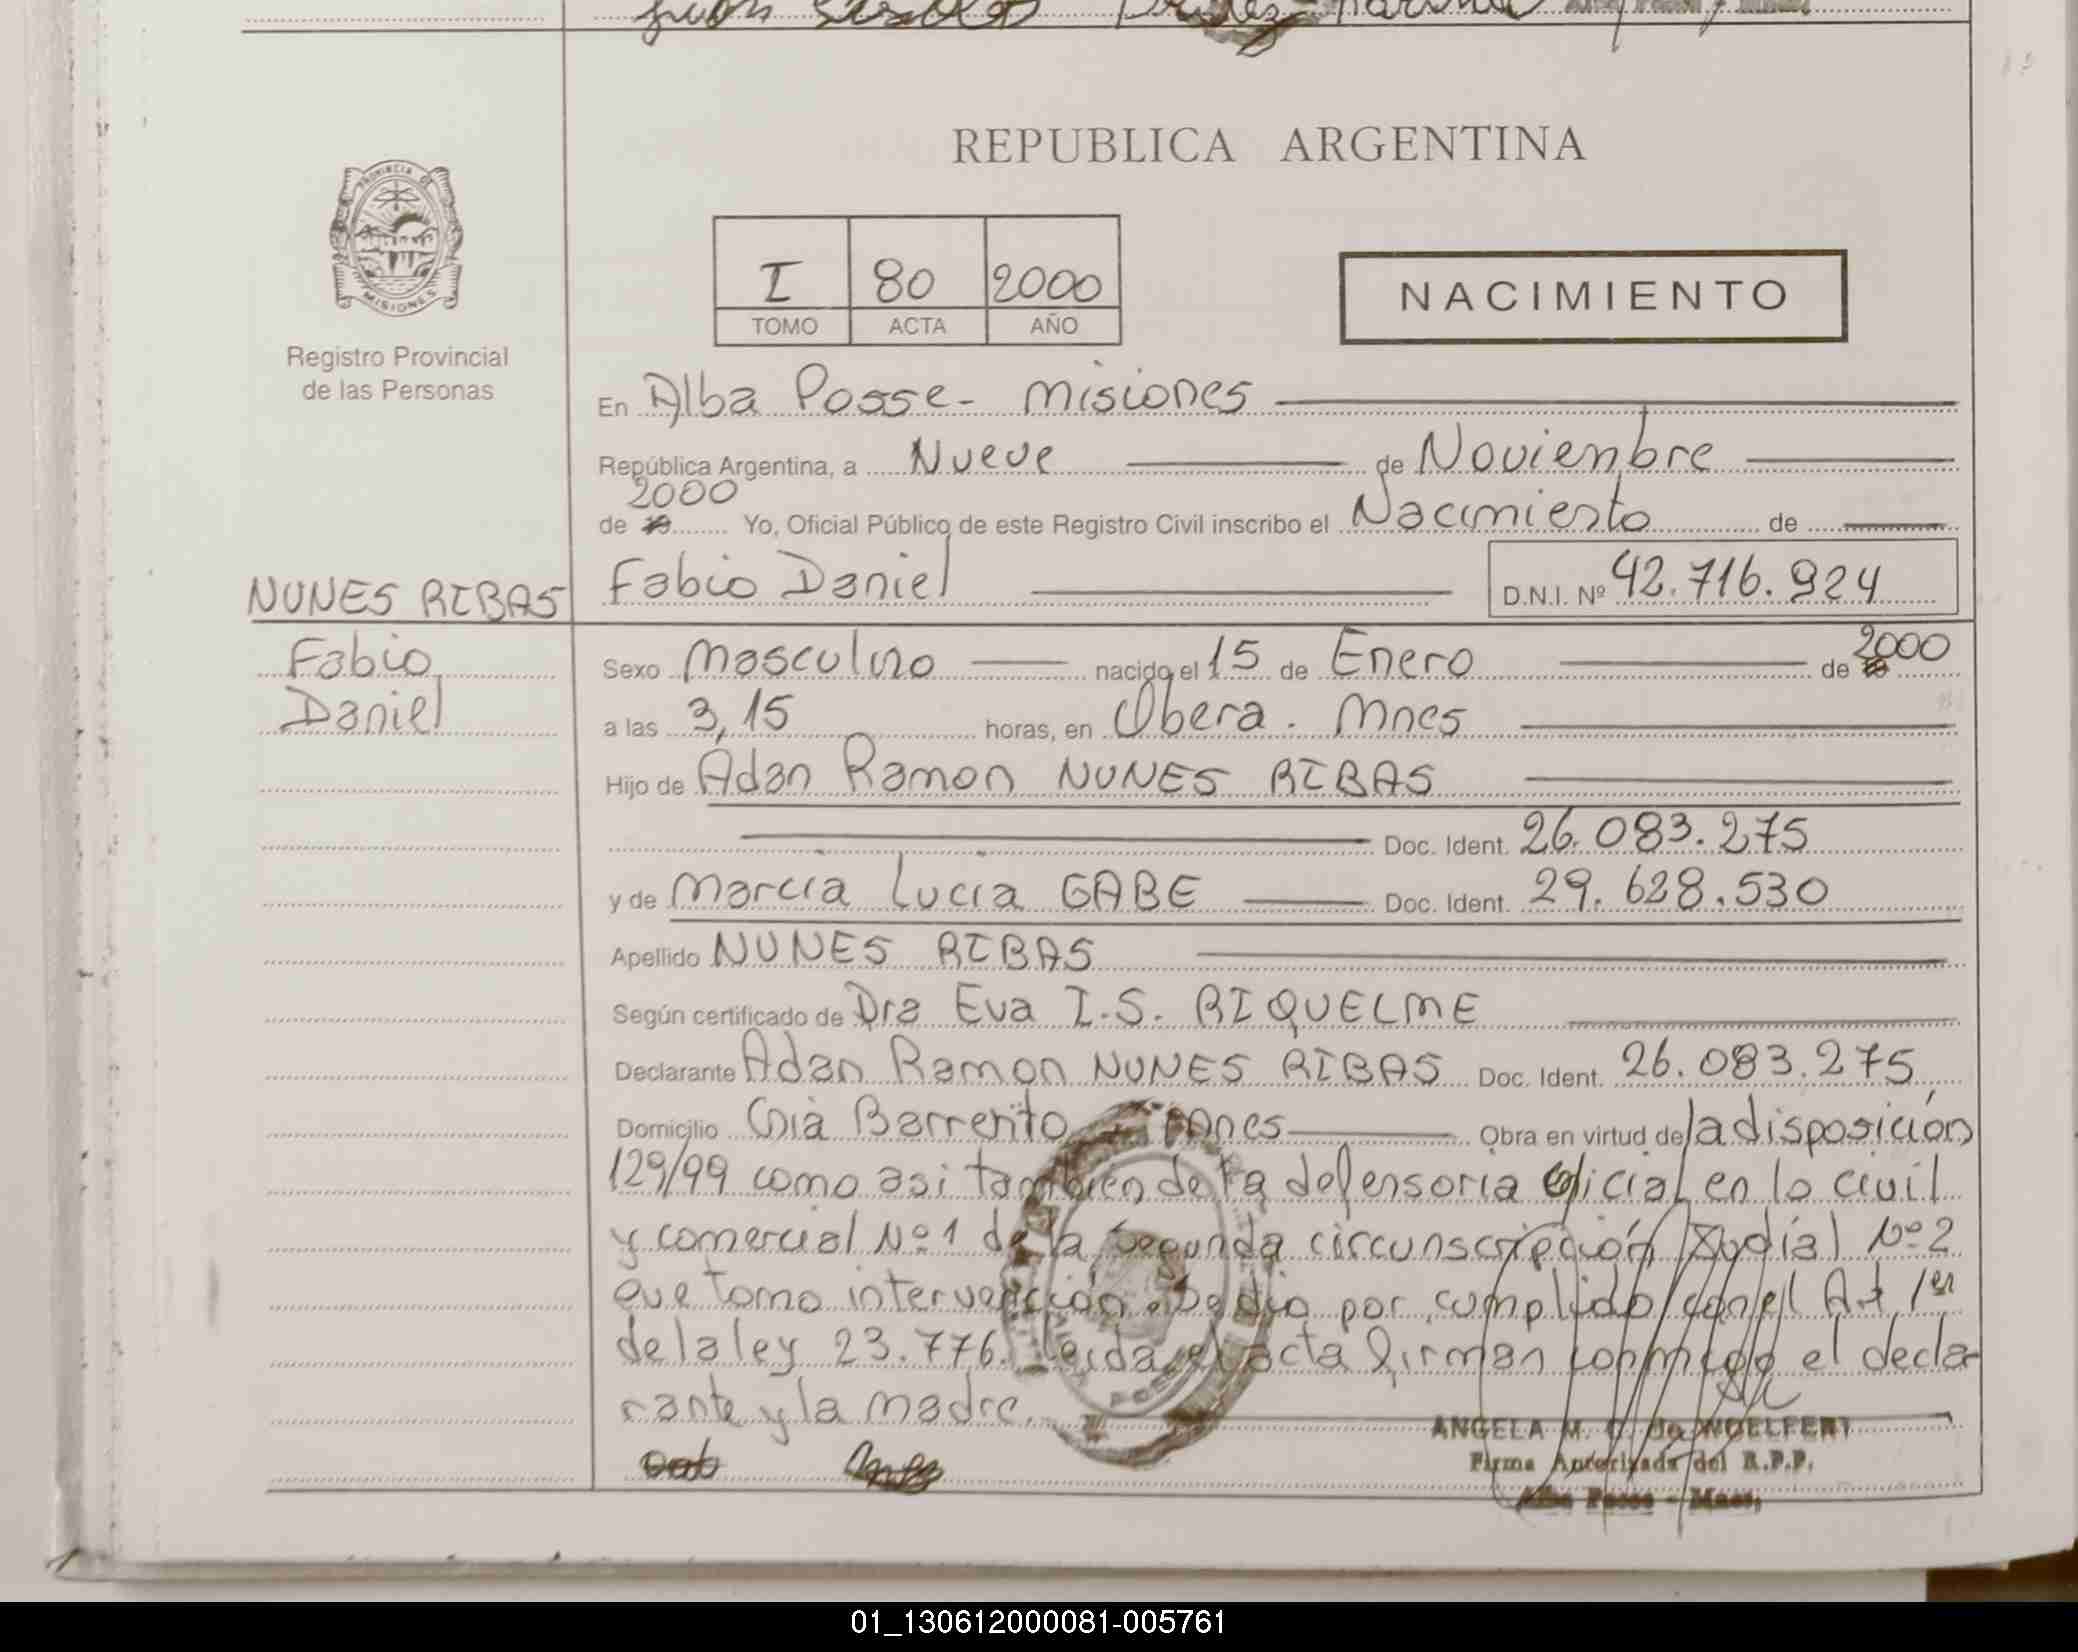 REPUBLICA ARGENTINA
PROVINCIA DE MISIONES
Registro Provincial
de las Personas
I 80 2000
TOMO ACTA AÑO
NACIMIENTO
En Alba Posse - Misiones
República Argentina, a Nueve de Noviembre
2000
de 19 Yo, Oficial Público de este Registro Civil inscribo el Nacimiento de
NUNES RIBAS Fabio Daniel D.N.I. Nº 42.716.924
Fabio
Daniel
Sexo Masculino nacido el 15 de Enero de 2000
a las 3,15 horas, en Obera. Mnes
Hijo de Adan Ramon NUNES RIBAS
Doc. Ident. 26.083.275
y de Marcia Lucia GABE Doc. Ident. 29.628.530
Apellido NUNES RIBAS
Según certificado de Dra Eva I.S. RIQUELME
Declarante Adan Ramon NUNES RIBAS Doc. Ident. 26.083.275
Domicilio Cnia Barrerito Mnes Obra en virtud de la disposición
129/99 como asi tambien de la defensoria oficial en lo civil
y comercial Nº 1 de la segunda circunscripción Nº 2
que tomo intervención dio por cumplido con el Art 1er
de la ley 23.776. Leida el acta firman conmigo el decla
rante y la madre.
ANGELA M. C. de WOELFERT
Firma Autorizada del R.P.P.
Alba Posse - Mnes.
01_130612000081-005761